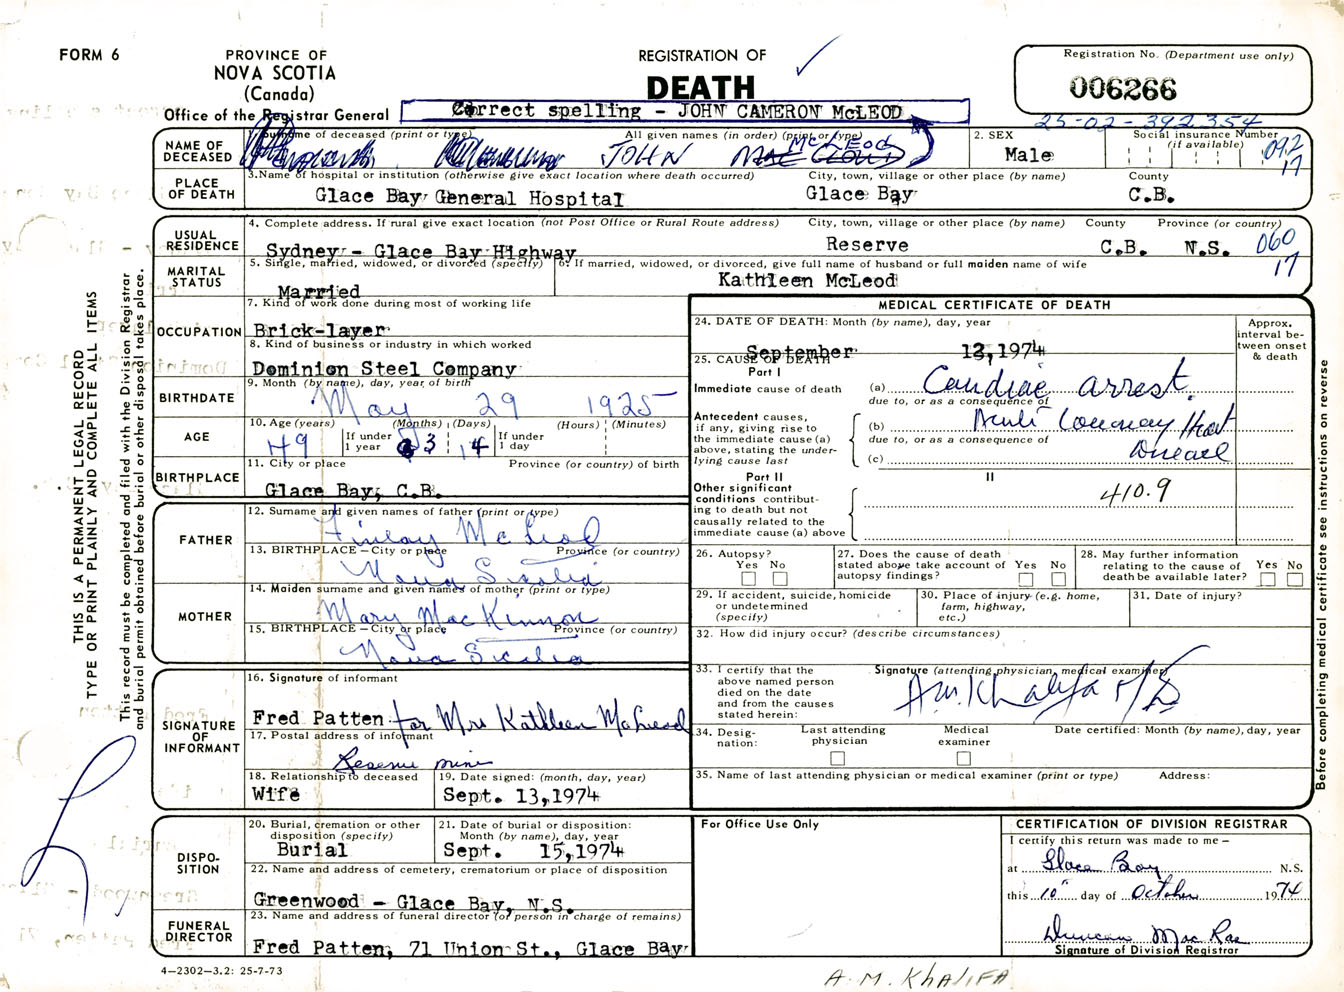 FORM 6
PROVINCE OF
NOVA SCOTIA
(Canada)
Office of the Registrar General
REGISTRATION OF
DEATH
Registration No. (Department use only)
006266
Correct spelling - JOHN CAMERON McLEOD
25-02-392354
NAME OF DECEASED
1. Surname of deceased (print or type) All given names (in order) (print or type)
JOHN McLeod
2. SEX
Male
Social insurance Number (if available)
092
17
PLACE OF DEATH
3. Name of hospital or institution (otherwise give exact location where death occurred) City, town, village or other place (by name) County
Glace Bay General Hospital Glace Bay C.B.
USUAL RESIDENCE
4. Complete address. If rural give exact location (not Post Office or Rural Route address) City, town, village or other place (by name) County Province (or country)
Sydney - Glace Bay Highway Reserve C.B. N.S.
060
17
MARITAL STATUS
5. Single, married, widowed, or divorced (specify)
Married
6. If married, widowed, or divorced, give full name of husband or full maiden name of wife
Kathleen McLeod
OCCUPATION
7. Kind of work done during most of working life
Brick-layer
8. Kind of business or industry in which worked
Dominion Steel Company
BIRTHDATE
9. Month (by name), day, year of birth
May 29 1925
AGE
10. Age (years) If under 1 year (Months) (Days) If under 1 day (Hours) (Minutes)
49 3 14
BIRTHPLACE
11. City or place Province (or country) of birth
Glace Bay, C.B.
FATHER
12. Surname and given names of father (print or type)
Finlay McLeod
13. BIRTHPLACE – City or place Province (or country)
Nova Scotia
MOTHER
14. Maiden surname and given names of mother (print or type)
Mary MacKinnon
15. BIRTHPLACE – City or place Province (or country)
Nova Scotia
SIGNATURE OF INFORMANT
16. Signature of informant
Fred Patten for Mrs Kathleen McLeod
17. Postal address of informant
Reserve Mines
18. Relationship to deceased
Wife
19. Date signed: (month, day, year)
Sept. 13,1974
DISPO-SITION
20. Burial, cremation or other disposition (specify)
Burial
21. Date of burial or disposition: Month (by name), day, year
Sept. 15,1974
22. Name and address of cemetery, crematorium or place of disposition
Greenwood - Glace Bay, N.S.
FUNERAL DIRECTOR
23. Name and address of funeral director (or person in charge of remains)
Fred Patten, 71 Union St., Glace Bay
4–2302–3.2: 25-7-73
MEDICAL CERTIFICATE OF DEATH
24. DATE OF DEATH: Month (by name), day, year
September 13,1974
Approx. interval between onset & death
25. CAUSE OF DEATH
Part I
Immediate cause of death
(a) Cardiac arrest.
due to, or as a consequence of
Antecedent causes, if any, giving rise to the immediate cause (a) above, stating the underlying cause last
(b) Acute Coronary Heart Disease
due to, or as a consequence of
(c)
Part II
II
Other significant conditions contributing to death but not causally related to the immediate cause (a) above
410.9
26. Autopsy? Yes No
27. Does the cause of death stated above take account of autopsy findings? Yes No
28. May further information relating to the cause of death be available later? Yes No
29. If accident, suicide, homicide or undetermined (specify)
30. Place of injury (e.g. home, farm, highway, etc.)
31. Date of injury?
32. How did injury occur? (describe circumstances)
33. I certify that the above named person died on the date and from the causes stated herein:
Signature (attending physician, medical examiner)
A.M. Khalifa MD
34. Designation: Last attending physician Medical examiner Date certified: Month (by name), day, year
35. Name of last attending physician or medical examiner (print or type) Address:
For Office Use Only
CERTIFICATION OF DIVISION REGISTRAR
I certify this return was made to me –
at Glace Bay N.S.
this 10" day of October 1974
Duncan MacRae
Signature of Division Registrar
A. M. KhALIFA
THIS IS A PERMANENT LEGAL RECORD
TYPE OR PRINT PLAINLY AND COMPLETE ALL ITEMS
This record must be completed and filed with the Division Registrar
and burial permit obtained before burial or other disposal takes place.
Before completing medical certificate see instructions on reverse